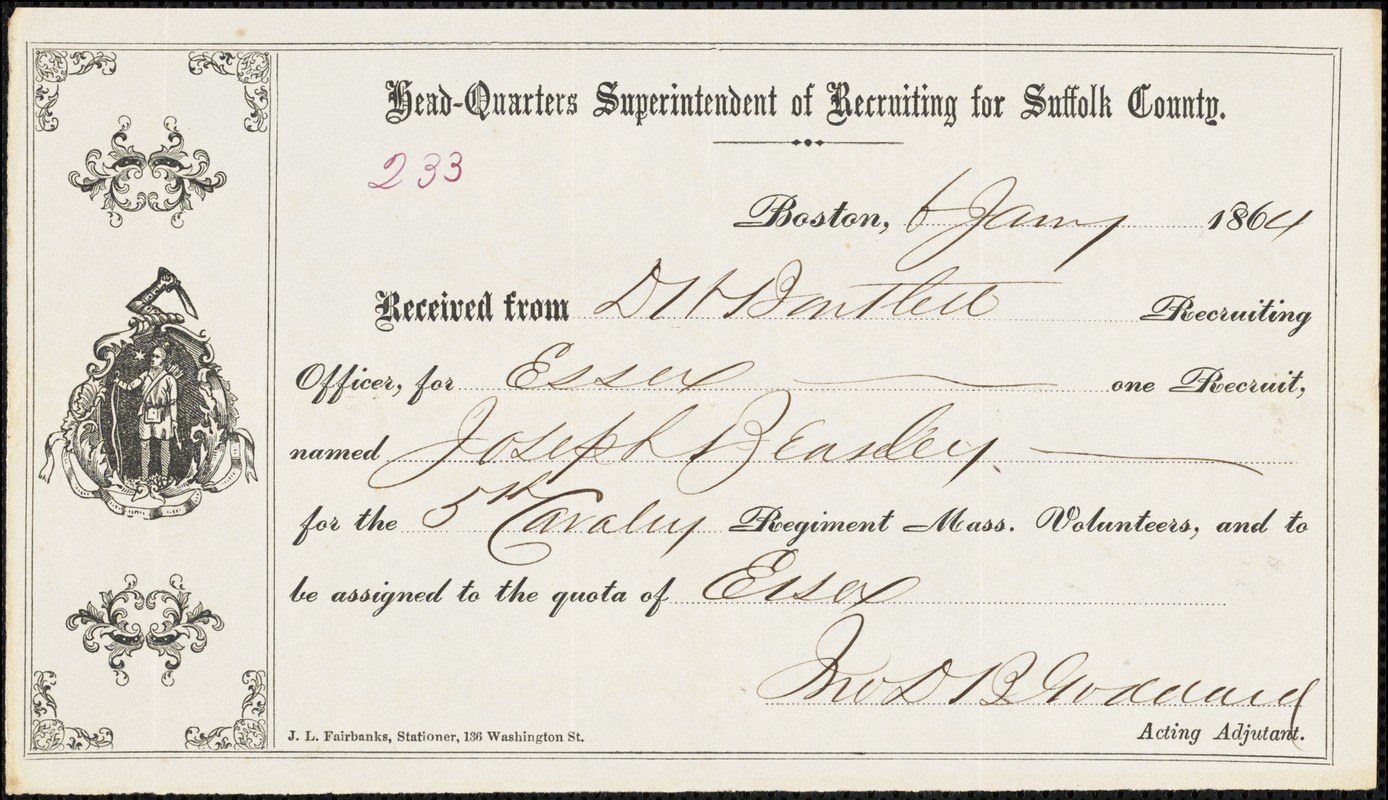 Head-Quarters Superintendent of Recruiting for Suffolk County.
233
Boston, 6 Jany 1864
Received from D H Bartlett Recruiting
Officer, for Essex one Recruit,
named Joseph Beasley.
for the 5th Cavalry Regiment Mass. Volunteers, and to
be assigned to the quota of Essex
Jno D B Goddard
J. L. Fairbanks, Stationer, 136 Washington St. Acting Adjutant.